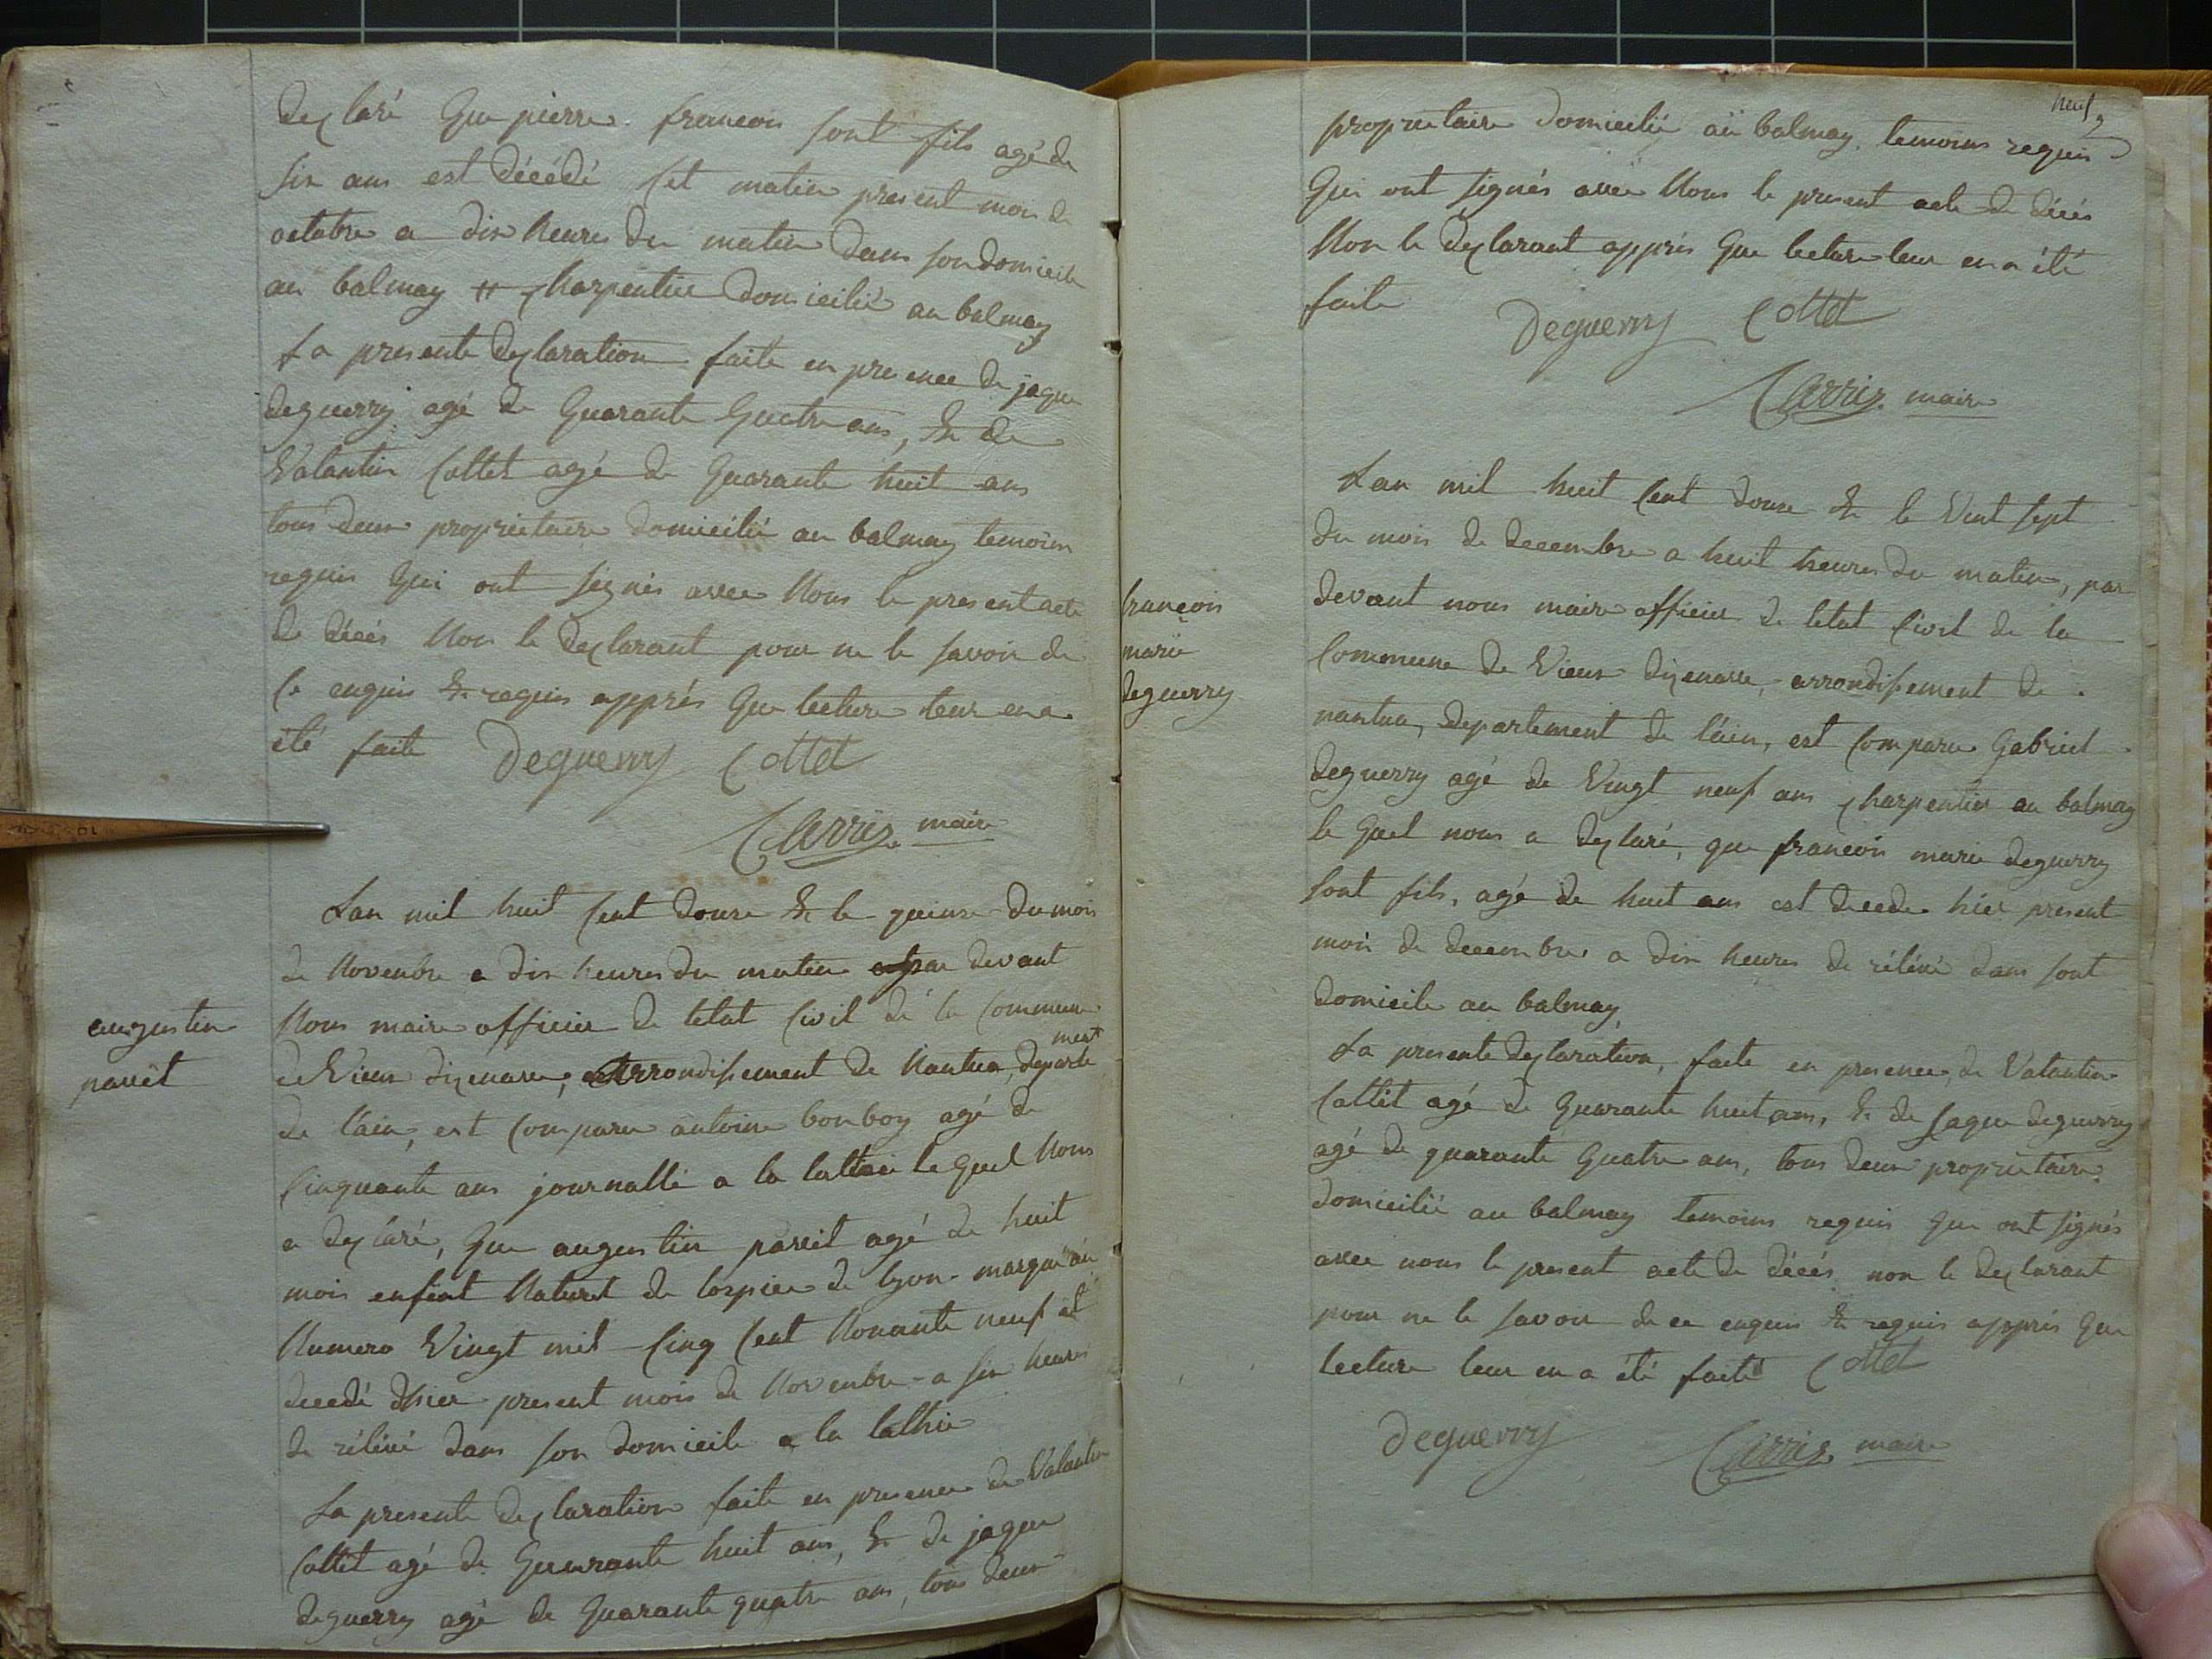 declaré que pierre françois sont fils agé de
six ans est décédé cet matin present mois de
octobre a dix heures du matin dans son domicile
au balmay # charpentier domicilié au balmay
La presente declaration faite en presence de jaque
deguerry agé de quarante quatre ans, & de
Valantin Cottet agé de quarante huit ans
tous deux proprietaire domicilié au balmay temoins
requis qui ont signés avec Nous le present acte
de décés Non le declarant pour ne le savoir de
ce enquis & requis apprés que lecture leur en a
été faite Deguerry Cottet
Carrier maire
augustin
pariët
Lan mil huit cent douze & le quinze du mois
de Novenbre a dix heures du matin par devant
Nous maire officier de letat civil de la commune
de Vieux dizenave, Arrondissement de Nantua, departe
ment
de l'ain, est comparu antoine bonboy agé de
cinquante ans journallié a la lattiai le quel Nous
a declaré, que augustin pariët agé de huit
mois enfant Naturel de lospice de lyon marqué au
Numero Vingt mil cinq cent Nonante neuf et
decedé dhier present mois de Novenbre a six heures
de rélévé dans son domicile a la lathie
La presente declaration faite en presence de Valantin
Cottet agé de quarante huit ans, & de jaque
deguerry agé de quarante quatre ans, tous deux
neuf 9
proprietaire domicilié aü balmay, temoins requis
qui ont signés avec Nous le present acte de décés
Non le declarant apprés que lecture leur en a été
faite
Deguerry Cottet
Carrier maire
françois
marie
deguerry
Lan mil huit cent douze & le Vint sept
du mois de decembre a huit heures du matin, par
devant nous maire officier de letat civil de la
commune de Vieux dizenave, arrondissement de
nantua, departement de l'ain, est comparu Gabriel
deguerry agé de Vingt neuf ans charpentier au balmay
le quel nous a declaré, que françois marie deguerry
sont fils, agé de huit ans est decede hier present
mois de decembre a dix heures de rélévé dans sont
domicile au balmay
La presente declaration, faite en presence, de Valantin
Cottet agé de quarante huit ans, & de Jaque deguerry
agé de quarante quatre ans, tous deux proprietaire
domicilié au balmay temoins requis que ont signés
avec nous le present acte de décés non le declarant
pour ne le savoir de ce enquis & requis apprés que
lecture leur en a été faite Cottet
Deguerry Carrier maire